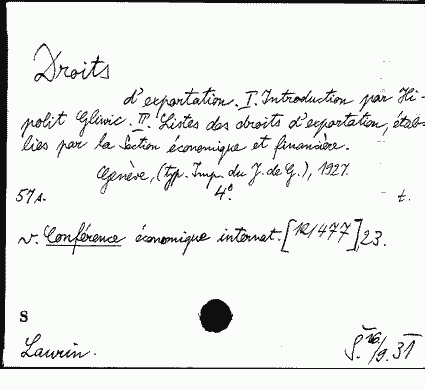 Droits
d'exportation. I. Introduction par Hi-
polit Gliwic. II. Listes des droits d'exportation, étab-
lies par la Section économique et financière.
Genève, (typ. Imp. du J. de G.), 1927.
57 s. 4°. t.
v. Conférence économique internat. [121477] 23.
S
Lawrin.